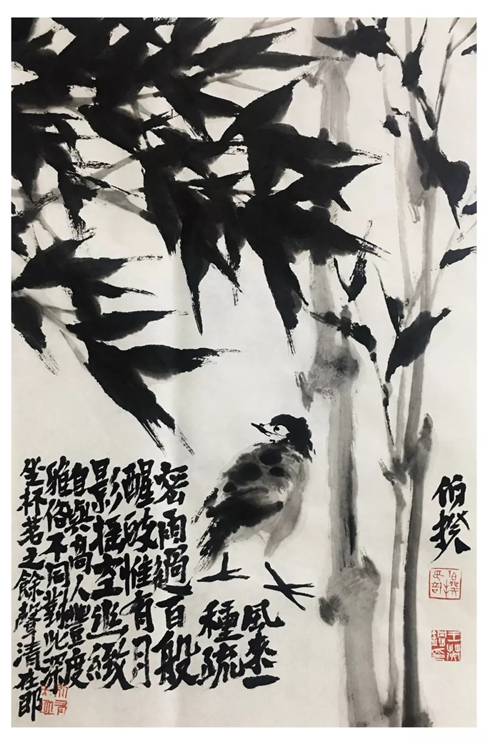 風来一
種疏
密雨過百般
醒惟有月
影空
自與高人豐度
雅俗不同對此深
坐杯茗之餘聲清在
伯揆